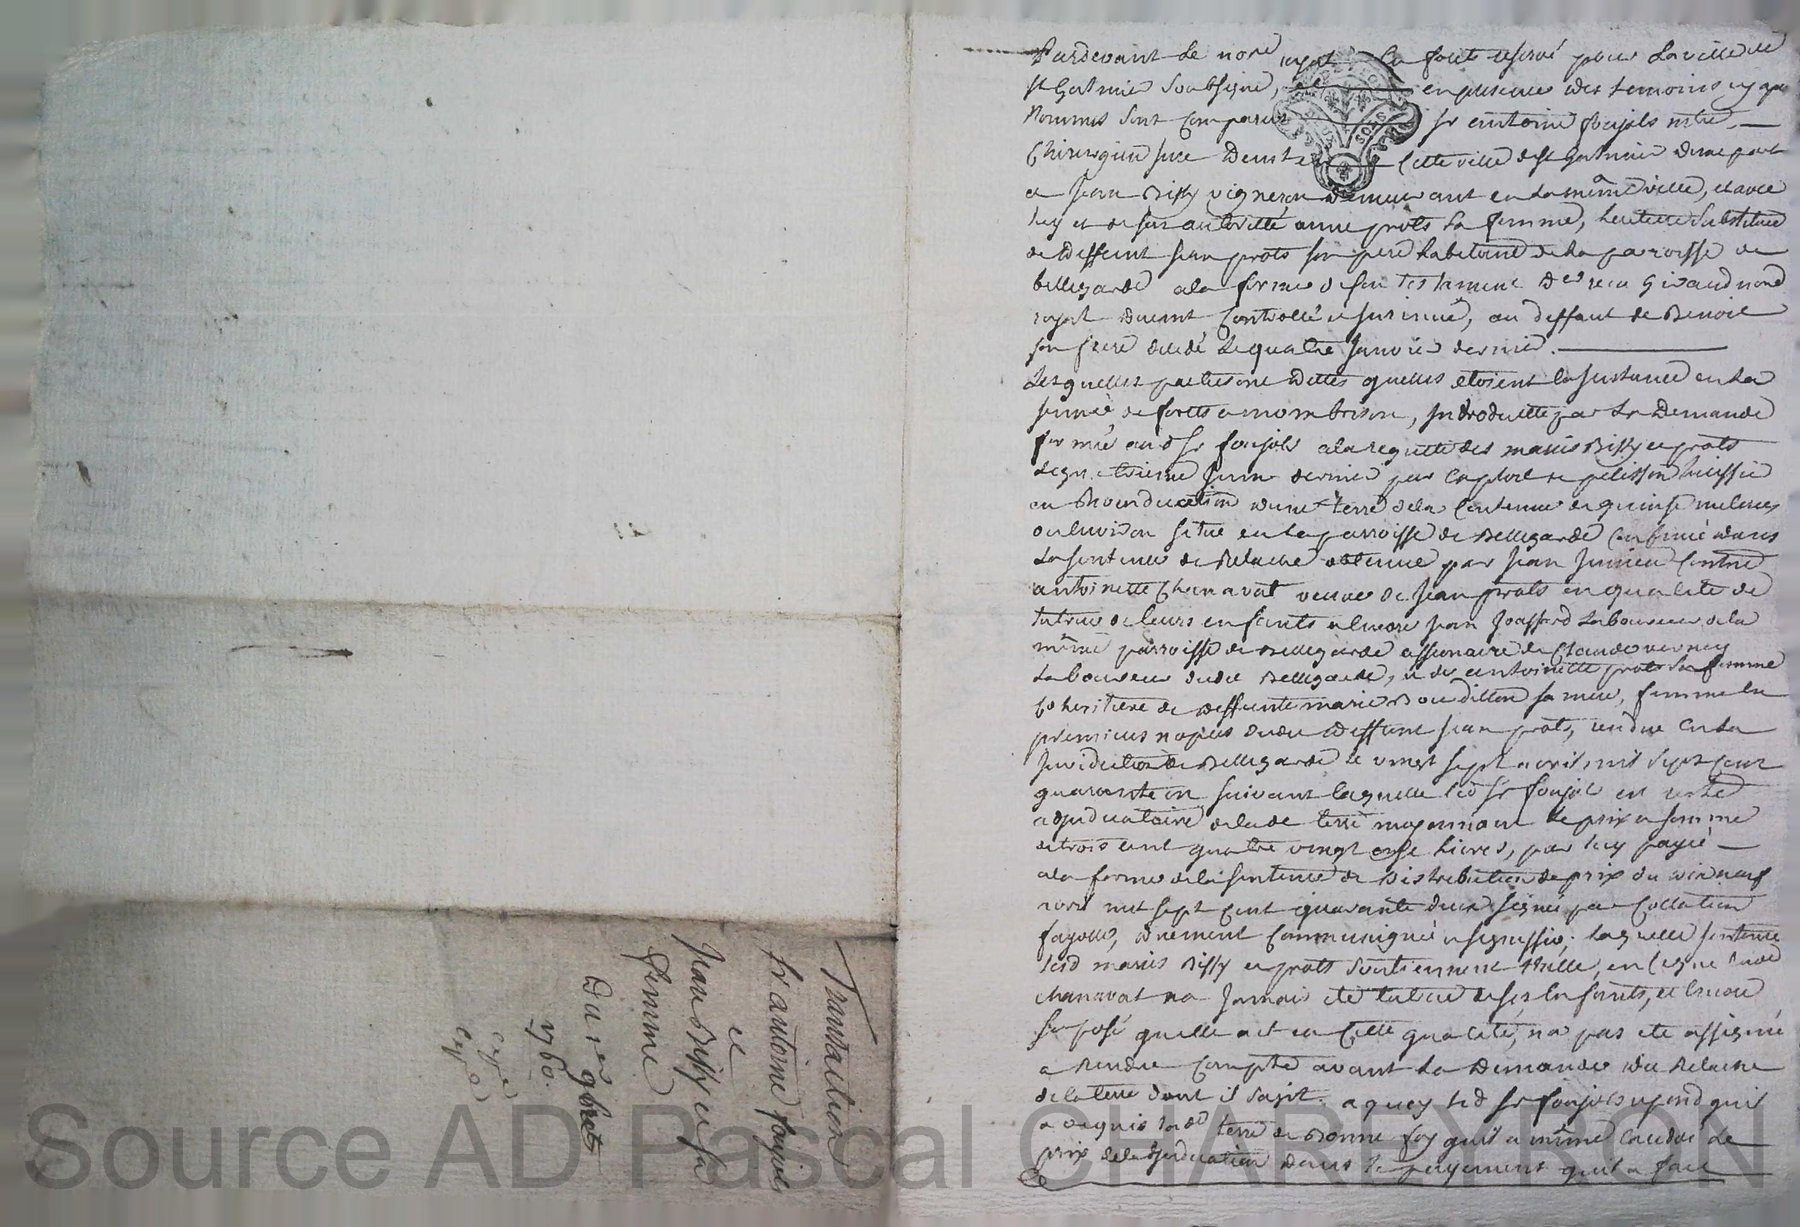 Transaction
Sr antoine foujols
et
Jean Bissy et sa
femme
Du 1er 9bre
1760.
Pardevant le nore royal en forets reservé pour la ville de
st Galmier soubsigné, en presence des temoins cy apres
Nommés sont comparus sr antoine foujols mtre
Chirurgien juré demeurant en cette ville de st Galmier d'une part
et Jean Bissy vigneron demeurant en la même ville, et avec
luy et de son authorité anne prots sa femme, heritiere substituée
de deffunt jean prots son pere habitant de la parroisse de
bellegarde a la forme de son testament reçu Giraud nore
royal duement controllé et insinué, au deffaut de Benoit
son frere decedé le quatre janvier dernier.
Lesquelles parties ont dittes quelles etoient en instance en la
de forets a montbrison, introduitte par la demande
formée aud sr foujols a la requette des mariés Bissy et prots
le juin dernier par exploit de pelisson huissier
en d'une terre de la contenue de quinse metures
ou environ située en la parroisse de Bellegarde confinée dans
la sentence de Relache obtenue par jean contre
antoinette Chanavat veuve de jean prots en qualité de
tutrice de leurs enfants et encore jean Joassard laboureur de la
même parroisse de Bellegarde de Claude vernay
laboureur dudit Bellegarde, et de antoinette prots sa femme
cohéritiere de deffunte marie sa mere, femme en
premieres nopces dudit deffunt jean prots, rendue en la
Juridiction de Bellegarde le vingt sept avril mil sept cent
quarante un suivant laquelle led sr foujols en resté
adjudicataire de lade terre moyennant le prix et somme
de trois cent quatre vingt onse livres, par luy payé
a la forme de la sentence de distribution de prix du dix neuf
avril mil sept cent quarante deux signée par collation
fayolle, duement communiquée et signiffiée; laquelle sentence
lesd mariés Bissy et prots soutiennent nulle, en ce que lade
chanavat na jamais été tutrice de ses enfants, et encore
suposé quelle ait eu cette qualité, na pas ete assignée
a rendre compte avant la demande du Relache
de la terre dont il sagit. a quoy led sr foujols repond quil
a acquis lade terre de Bonne foy quil a même le
prix de l'adjudication dans le payement quil a fait
Source AD Pascal CHAREYRON